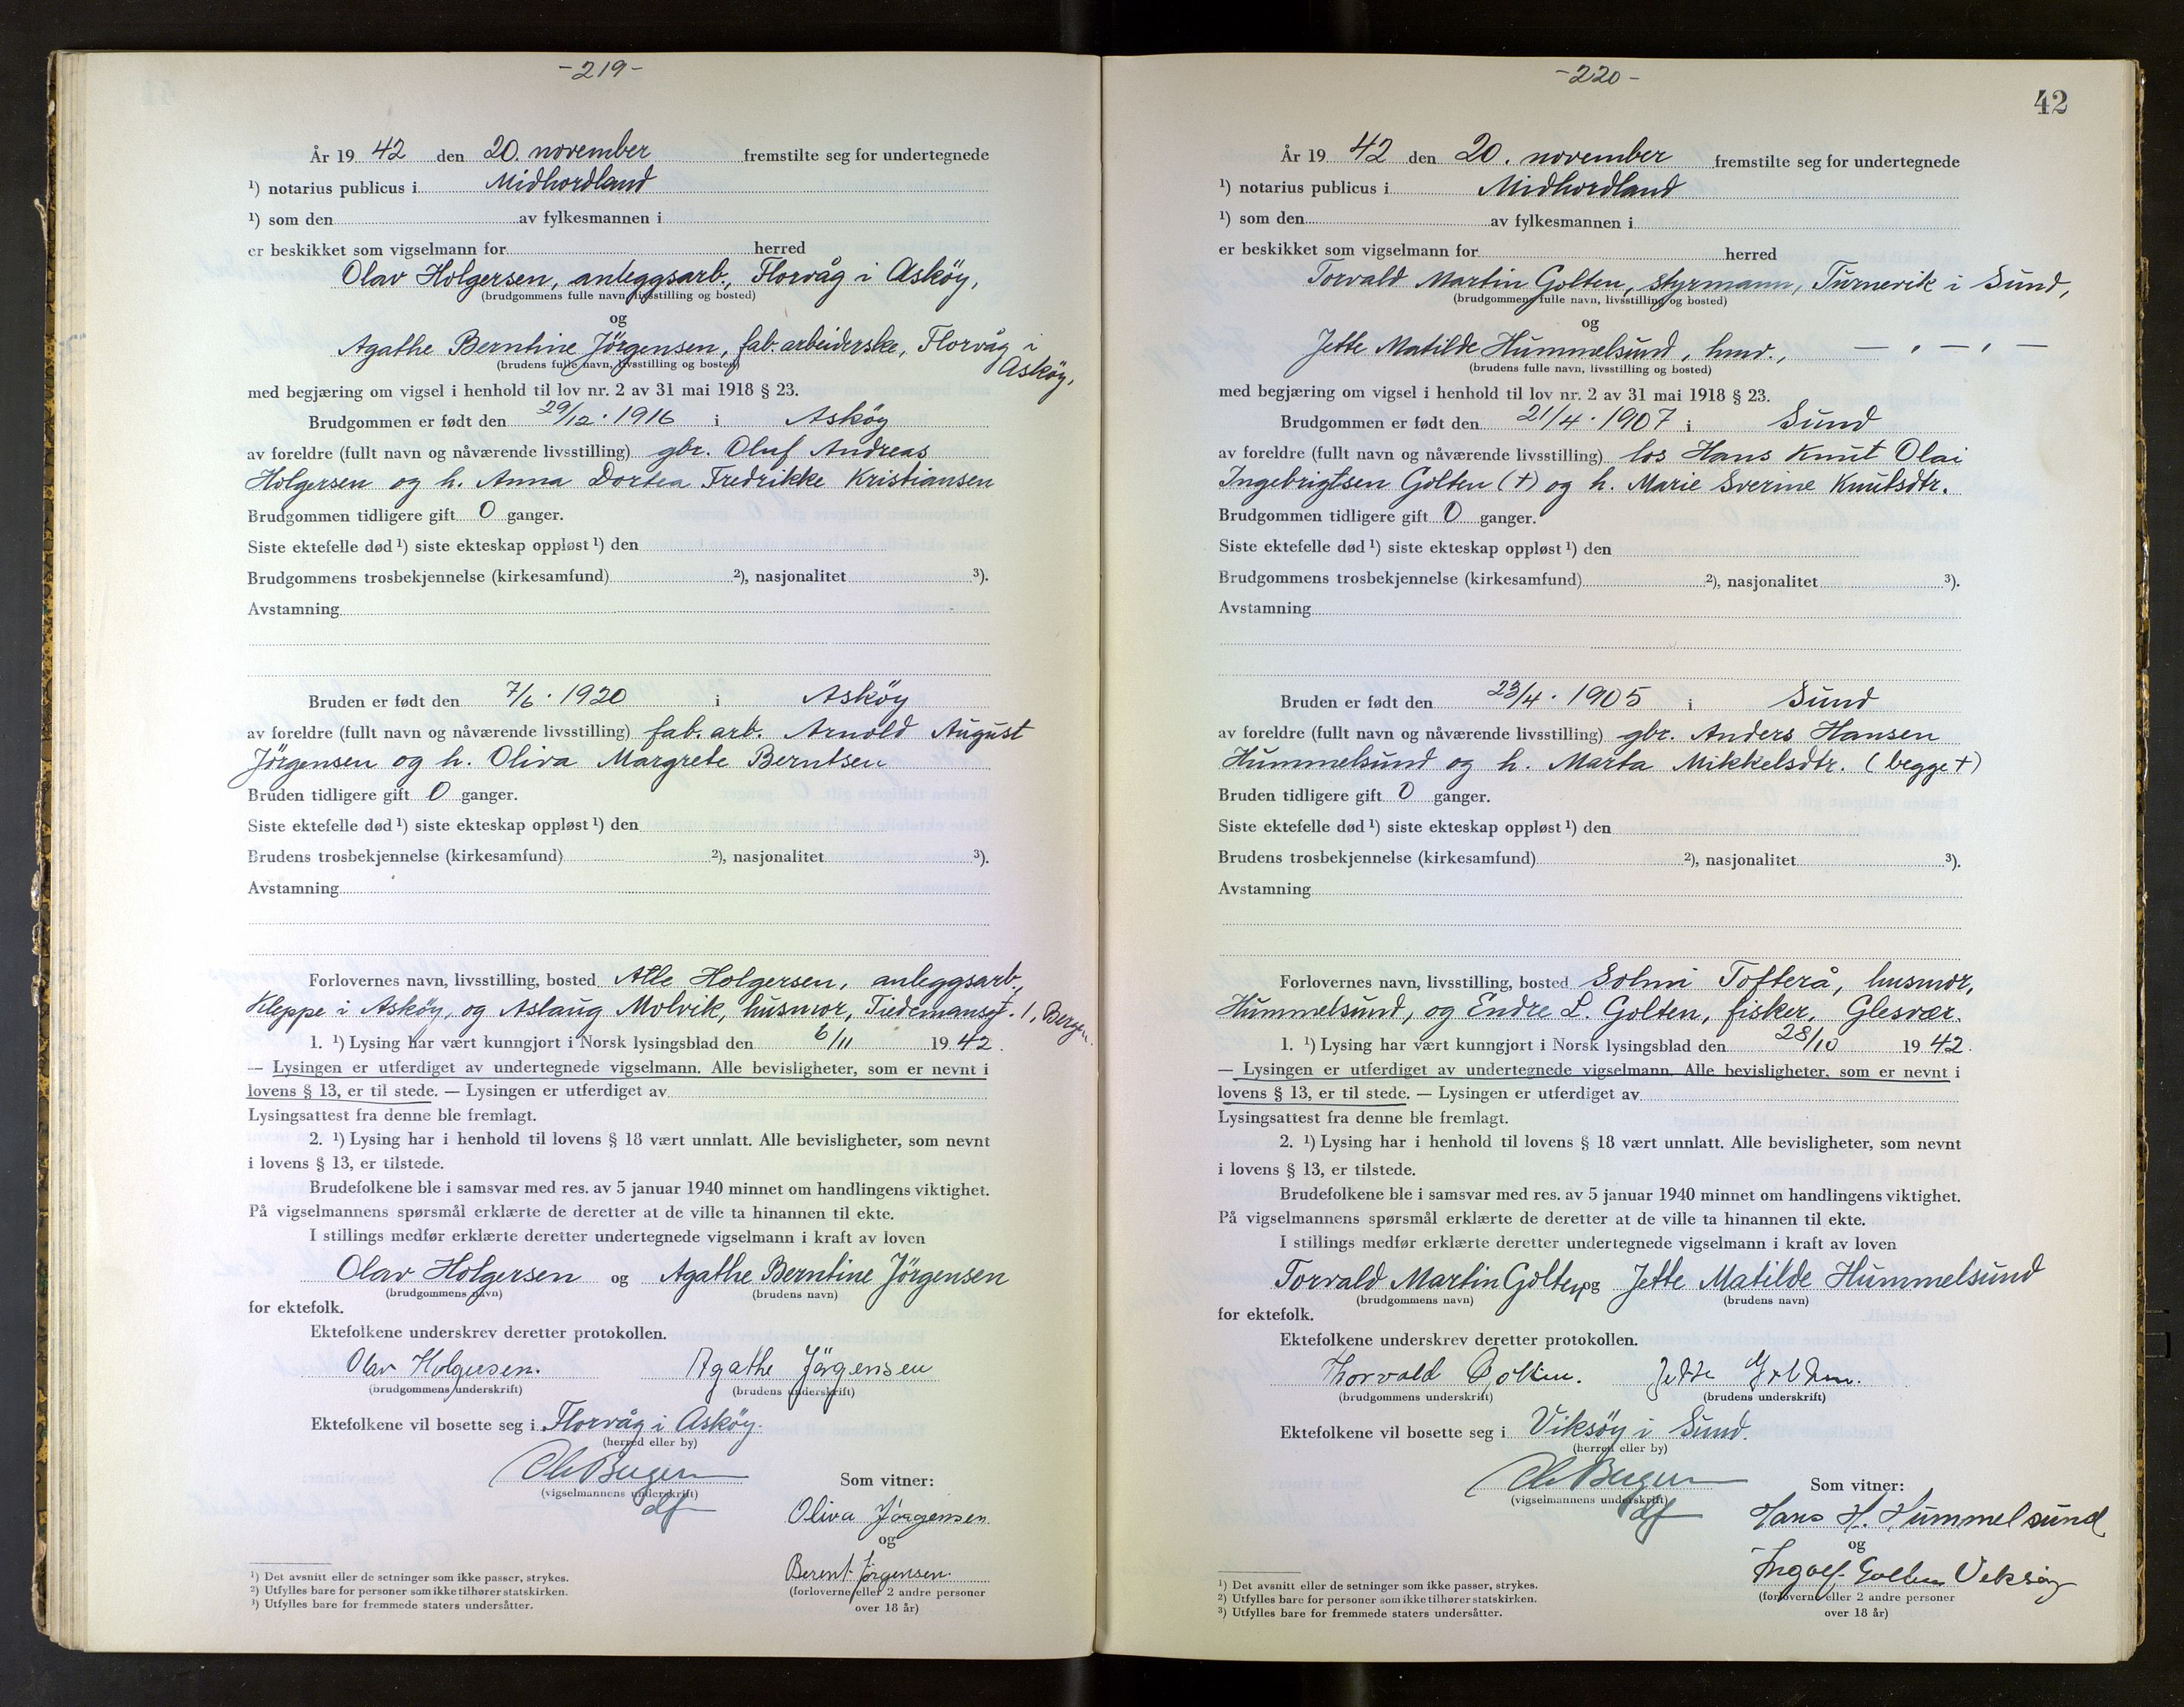 -219-
År 19 42 den 20. november fremstilte seg for undertegnede
¹) notarius publicus i Midhordland
¹) som den av fylkesmannen i
er beskikket som vigselmann for herred
Olav Holgersen, anleggsarb., Florvåg i Asköy,
(brudgommens fulle navn, livsstilling og bosted)
og
Agathe Berntine Jörgensen, fab.arbeiderske, Florvåg i
Asköy,
(brudens fulle navn, livsstilling og bosted)
med begjæring om vigsel i henhold til lov nr. 2 av 31 mai 1918 § 23.
Brudgommen er født den 29/12. 1916 i Asköy
av foreldre (fullt navn og nåværende livsstilling) gbr. Oluf Andreas
Holgersen og h. Anna Dortea Fredrikke Kristiansen
Brudgommen tidligere gift 0 ganger.
Siste ektefelle død ¹) siste ekteskap oppløst ¹) den
Brudgommens trosbekjennelse (kirkesamfund) ²), nasjonalitet ³).
Avstamning
Bruden er født den 7/6. 1920 i Asköy
av foreldre (fullt navn og nåværende livsstilling) fab. arb. Arnold August
Jörgensen og h. Oliva Margrete Berntsen
Bruden tidligere gift 0 ganger.
Siste ektefelle død ¹) siste ekteskap oppløst ¹) den
Brudens trosbekjennelse (kirkesamfund) ²), nasjonalitet ³).
Avstamning
Forlovernes navn, livsstilling, bosted Atle Holgersen, anleggsarb.,
Kleppe i Asköy, og Aslaug Molvik, husmor, Tiedemansgt. 1, Bergen.
1. ¹) Lysing har vært kunngjort i Norsk lysingsblad den 6/11 19 42.
— Lysingen er utferdiget av undertegnede vigselmann. Alle bevisligheter, som er nevnt i
lovens § 13, er til stede. — Lysingen er utferdiget av
Lysingsattest fra denne ble fremlagt.
2. ¹) Lysing har i henhold til lovens § 18 vært unnlatt. Alle bevisligheter, som nevnt
i lovens § 13, er tilstede.
Brudefolkene ble i samsvar med res. av 5 januar 1940 minnet om handlingens viktighet.
På vigselmannens spørsmål erklærte de deretter at de ville ta hinannen til ekte.
I stillings medfør erklærte deretter undertegnede vigselmann i kraft av loven
Olav Holgersen og Agathe Berntine Jörgensen
(brudgommens navn) (brudens navn)
for ektefolk.
Ektefolkene underskrev deretter protokollen.
Olav Holgersen. Agathe Jörgensen
(brudgommens underskrift) (brudens underskrift)
Ektefolkene vil bosette seg i Florvåg i Asköy.
(herred eller by)
(vigselmannens underskrift)
Som vitner:
Oliva Jörgensen
og
Berent Jörgensen.
(forloverne eller 2 andre personer
over 18 år)
¹) Det avsnitt eller de setninger som ikke passer, strykes.
²) Utfylles bare for personer som ikke tilhører statskirken.
³) Utfylles bare for fremmede staters undersåtter.
-220-
42
År 19 42 den 20. november fremstilte seg for undertegnede
¹) notarius publicus i Midhordland
¹) som den av fylkesmannen i
er beskikket som vigselmann for herred
Torvald Martin Golten, styrmann, Turnevik i Sund,
(brudgommens fulle navn, livsstilling og bosted)
og
Jette Matilde Hummelsund, hmv., — „ — „ —
(brudens fulle navn, livsstilling og bosted)
med begjæring om vigsel i henhold til lov nr. 2 av 31 mai 1918 § 23.
Brudgommen er født den 21/4. 1907 i Sund
av foreldre (fullt navn og nåværende livsstilling) los Hans Knut Olai
Ingebrigtsen Golten (†) og h. Marie Sverine Knutsdtr.
Brudgommen tidligere gift 0 ganger.
Siste ektefelle død ¹) siste ekteskap oppløst ¹) den
Brudgommens trosbekjennelse (kirkesamfund) ²), nasjonalitet ³).
Avstamning
Bruden er født den 23/4. 1905 i Sund
av foreldre (fullt navn og nåværende livsstilling) gbr. Anders Hansen
Hummelsund og h. Marta Mikkelsdtr. (begge †)
Bruden tidligere gift 0 ganger.
Siste ektefelle død ¹) siste ekteskap oppløst ¹) den
Brudens trosbekjennelse (kirkesamfund) ²), nasjonalitet ³).
Avstamning
Forlovernes navn, livsstilling, bosted Solmi Tofterå, husmor,
Hummelsund, og Endre L. Golten, fisker, Glesvær.
1. ¹) Lysing har vært kunngjort i Norsk lysingsblad den 28/10 19 42.
— Lysingen er utferdiget av undertegnede vigselmann. Alle bevisligheter, som er nevnt i
lovens § 13, er til stede. — Lysingen er utferdiget av
Lysingsattest fra denne ble fremlagt.
2. ¹) Lysing har i henhold til lovens § 18 vært unnlatt. Alle bevisligheter, som nevnt
i lovens § 13, er tilstede.
Brudefolkene ble i samsvar med res. av 5 januar 1940 minnet om handlingens viktighet.
På vigselmannens spørsmål erklærte de deretter at de ville ta hinannen til ekte.
I stillings medfør erklærte deretter undertegnede vigselmann i kraft av loven
Torvald Martin Golten og Jette Matilde Hummelsund
(brudgommens navn) (brudens navn)
for ektefolk.
Ektefolkene underskrev deretter protokollen.
Thorvald Golten. Jette Golten.
(brudgommens underskrift) (brudens underskrift)
Ektefolkene vil bosette seg i Viksöy i Sund.
(herred eller by)
(vigselmannens underskrift)
Som vitner:
Hans H. Hummelsund
og
Ingolf Golten Veksöy
(forloverne eller 2 andre personer
over 18 år)
¹) Det avsnitt eller de setninger som ikke passer, strykes.
²) Utfylles bare for personer som ikke tilhører statskirken.
³) Utfylles bare for fremmede staters undersåtter.